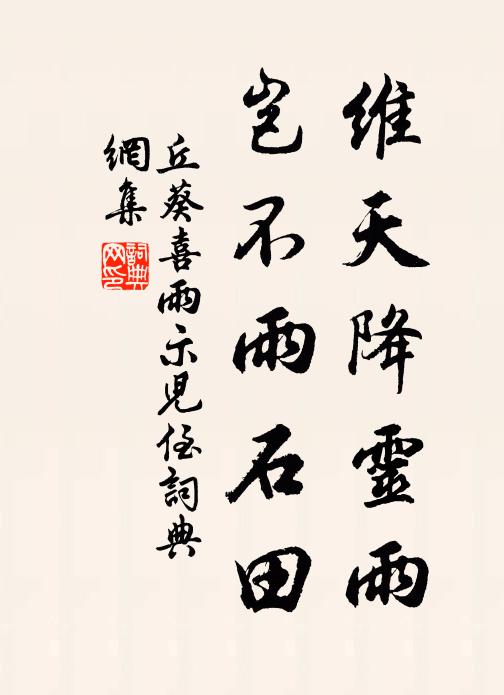 維天降靈雨
豈不雨石田
丘葵喜雨示兒侄詞典
網集
詞典
网印